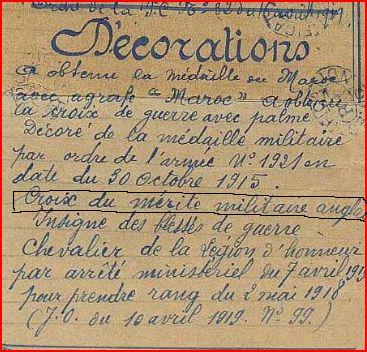 Ordre de la
Décorations
a obtenu la médaille du Maroc
avec agrafe "Maroc" a obtenu
la croix de guerre avec palme
Décoré de la médaille militaire
par ordre de l'armée N° 1921 en
date du 30 octobre 1915.
Croix du mérite militaire anglais
Insigne des blessés de guerre
Chevalier de la Légion d'honneur
par arrêté ministeriel du 7 avril 1919
pour prendre rang du 2 mai 1918
(J.O. du 10 avril 1919. N° 99.)